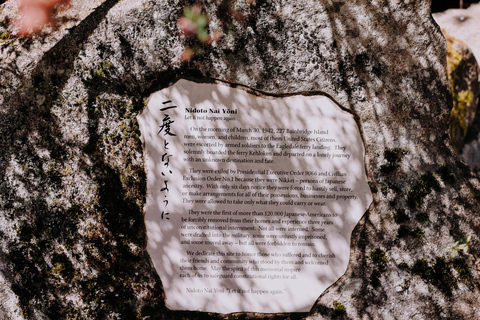 二度とないように
Nidoto Nai Yōni
Let it not happen again
On the morning of March 30, 1942, 227 Bainbridge Island
men, women, and children, most of them United States Citizens,
were escorted by armed soldiers to the Eagledale ferry landing. They
solemnly boarded the ferry Kehloken and departed on a lonely journey
with an unknown destination and fate.
They were exiled by Presidential Executive Order 9066 and Civilian
Exclusion Order No.1 because they were Nikkei – persons of Japanese
ancestry. With only six days notice they were forced to hastily sell, store,
or make arrangements for all of their possessions, businesses and property.
They were allowed to take only what they could carry or wear.
They were the first of more than 120,000 Japanese Americans to
be forcibly removed from their homes and experience three years
of unconstitutional internment. Not all were interned. Some
were drafted into the military, some were unjustly imprisoned,
and some moved away – but all were forbidden to remain.
We dedicate this site to honor those who suffered and to cherish
the friends and community who stood by them and welcomed
them home. May the spirit of this memorial inspire
each of us to safeguard constitutional rights for all.
Nidoto Nai Yoni – "Let it not happen again."